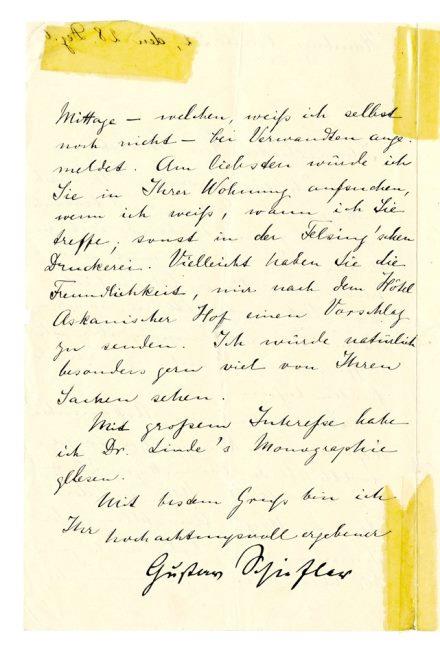 Mittage – welchen, weiß ich selbst
noch nicht – bei Verwandten ange-
meldet. Am liebsten würde ich
Sie in Ihrer Wohnung aufsuchen,
wenn ich weiß, wann ich Sie
treffe; sonst in der Felsing'schen
Druckerei. Vielleicht haben Sie die
Freundlichkeit, mir nach dem Hôtel
Askanischer Hof einen Vorschlag
zu senden. Ich würde natürlich
besonders gern viel von Ihren
Sachen sehen.
Mit großem Interesse habe
ich Dr. Linde's Monographie
gelesen.
Mit bestem Gruß bin ich
Ihr hochachtungsvoll ergebener
Gustav Schiefler